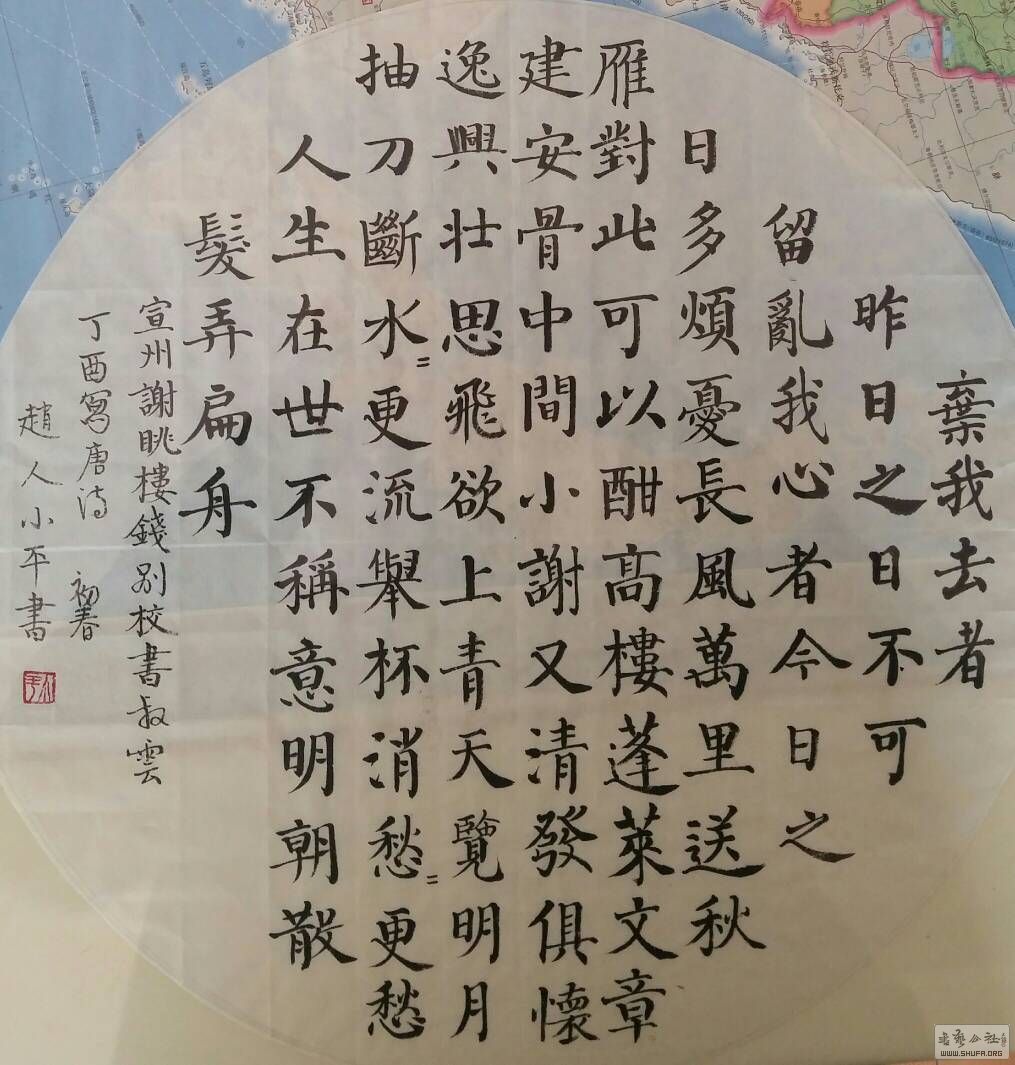 棄我去者
昨日之日不可
留亂我心者今日之
日多煩憂長風萬里送秋
雁對此可以酣高樓蓬萊文章
建安骨中間小謝又清發俱懷
逸興壯思飛欲上青天覽明月
抽刀斷水=更流舉杯消愁=更愁
人生在世不稱意明朝散
髮弄扁舟
宣州謝眺樓錢別校書叔雲
丁酉寫唐诗 初春
趙人小平書
書藝公社
WWW.SHUFA.ORG